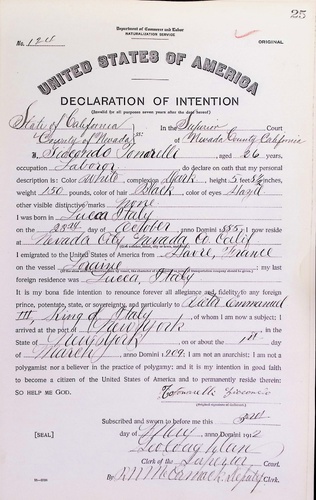 25
Department of Commerce and Labor
NATURALIZATION SERVICE
No. 124
ORIGINAL
UNITED STATES OF AMERICA
DECLARATION OF INTENTION
(Invalid for all purposes seven years after the date hereof)
State of California
County of Nevada ss: In the Superior Court
of Nevada County California
I, Giocondo Tomarelli, aged 26 years,
occupation Laborer, do declare on oath that my personal
description is: Color White, complexion Dark, height 5 feet inches,
weight 150 pounds, color of hair Black, color of eyes
other visible distinctive marks None
I was born in Lucca Italy
on the day of October, anno Domini 1885; I now reside
at Nevada City, Nevada Co. Calif
I emigrated to the United States of America from Havre, France
on the vessel Loraine; my last
foreign residence was Lucca, Italy
It is my bona fide intention to renounce forever all allegiance and fidelity to any foreign
prince, potentate, state, or sovereignty, and particularly to Emmanuel
III, King of Italy, of whom I am now a subject; I
arrived at the port of New York, in the
State of New York, on or about the 1st day
of March, anno Domini 1909; I am not an anarchist; I am not a
polygamist nor a believer in the practice of polygamy; and it is my intention in good faith
to become a citizen of the United States of America and to permanently reside therein:
SO HELP ME GOD.
Subscribed and sworn to before me this
[SEAL] day of May, anno Domini 1912
Clerk of the Superior Court.
By R.N. McCormack, Deputy Clerk.